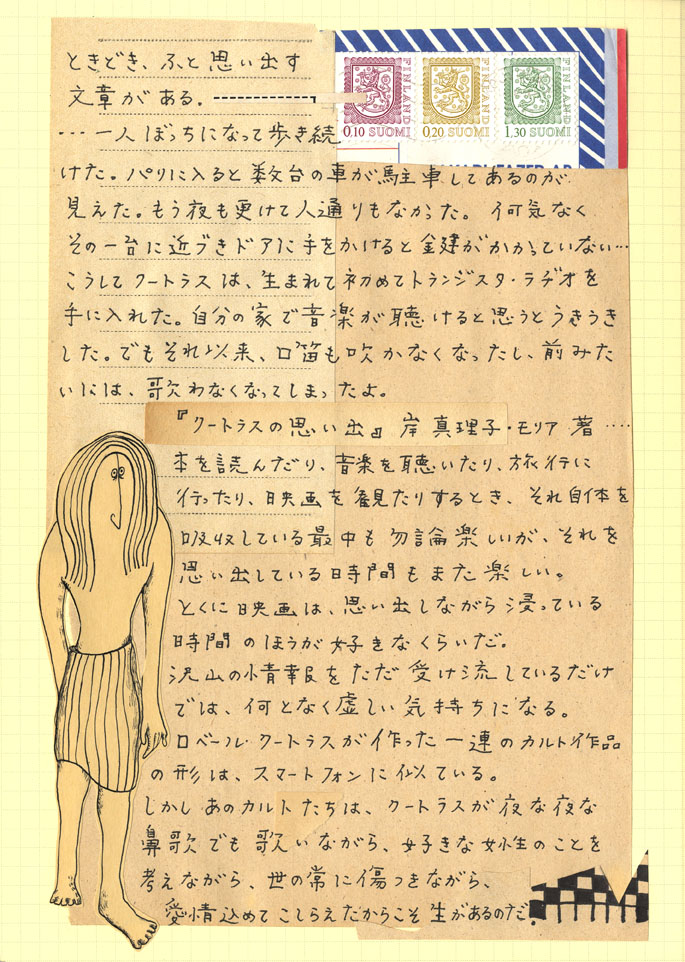 ときどき、ふと思い出す
文章がある。
…一人ぼっちになって歩き続
けた。パリに入ると数台の車が駐車してあるのが
見えた。もう夜も更けて人通りもなかった。何気なく
その一台に近づきドアに手をかけると鍵がかかっていない…
こうしてクートラスは、生まれて初めてトランジスタ・ラヂオを
手に入れた。自分の家で音楽が聴けると思うとうきうき
した。でもそれ以来、口笛も吹かなくなったし、前みた
いには、歌わなくなってしまったよ。
『クートラスの思い出』岸真理子・モリア 著……
本を読んだり、音楽を聴いたり、旅行に
行ったり、映画を観たりするとき、それ自体を
吸収している最中も勿論楽しいが、それを
思い出している時間もまた楽しい。
とくに映画は、思い出しながら浸っている
時間のほうが好きなくらいだ。
沢山の情報をただ受け流しているだけ
では、何となく虚しい気持ちになる。
ロベール・クートラスが作った一連のカルト作品
の形は、スマートフォンに似ている。
しかしあのカルトたちは、クートラスが夜な夜な
鼻歌でも歌いながら、好きな女性のことを
考えながら、世の常に傷つきながら、
愛情込めてこしらえたからこそ生があるのだ。
FINLAND
0,10 SUOMI
FINLAND
0,20 SUOMI
FINLAND
1,30 SUOMI